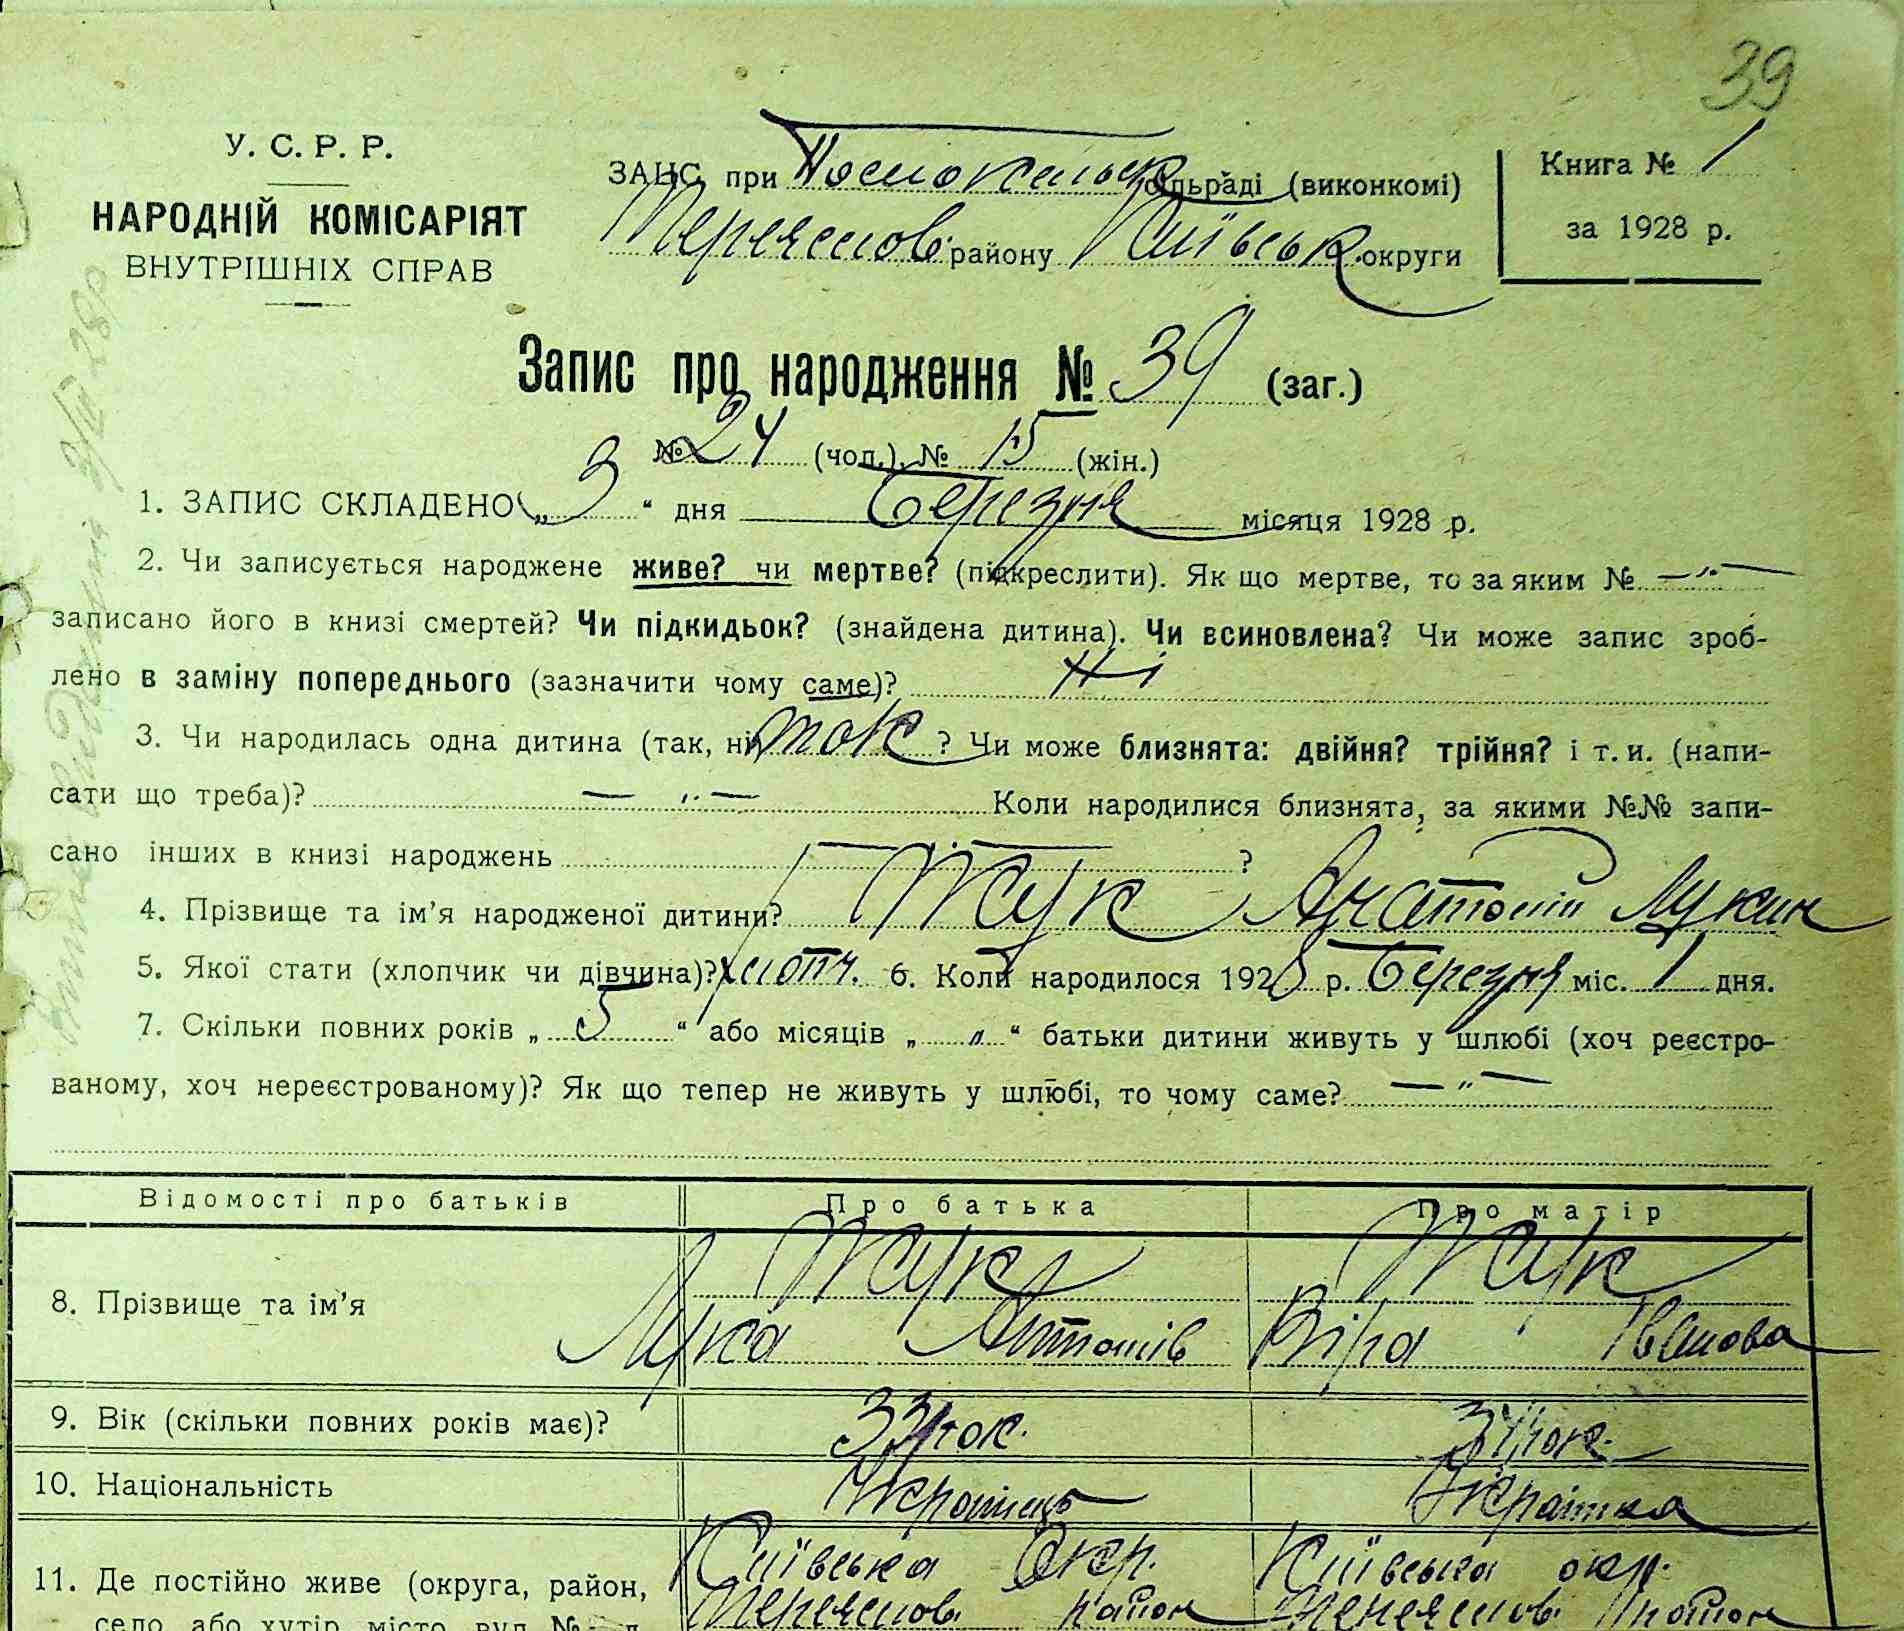 39
У. С. Р. Р.
НАРОДНІЙ КОМІСАРІЯТ
ВНУТРІШНІХ СПРАВ
ЗАГС при сільраді (виконкомі)
Переяслов. району Київськ. округи
Книга № 1
за 1928 р.
Запис про народження № 39 (заг.)
№ 24 (чол.) № 15 (жін.)
1. ЗАПИС СКЛАДЕНО „ 3 “ дня Березня місяця 1928 р.
2. Чи записується народжене живе? чи мертве? (підкреслити). Як що мертве, то за яким № — „ —
записано його в книзі смертей? Чи підкидьок? (знайдена дитина). Чи всиновлена? Чи може запис зроб-
лено в заміну попереднього (зазначити чому саме)? Ні
3. Чи народилась одна дитина (так, ні) так ? Чи може близнята: двійня? трійня? і т. и. (напи-
сати що треба)? — „ — Коли народилися близнята, за якими №№ запи-
сано інших в книзі народжень — „ — ?
4. Прізвище та ім’я народженої дитини? Жук Анатолій Лукин
5. Якої стати (хлопчик чи дівчина)? хлопч. 6. Коли народилося 1928 р. Березня міс. 1 дня.
7. Скільки повних років „ 5 “ або місяців „ „ “ батьки дитини живуть у шлюбі (хоч реєстро-
ваному, хоч нереєстрованому)? Як що тепер не живуть у шлюбі, то чому саме? — „ —
Відомості про батьків Про батька Про матір
8. Прізвище та ім’я Жук Жук
Лука Антонів Віра Іванова
9. Вік (скільки повних років має)? 33 рок. 34 рок.
10. Національність Українець Українка
11. Де постійно живе (округа, район, Київська Окр. Київська окр.
село або хутір, місто, вул. № Переяслов. район Переяслов. район